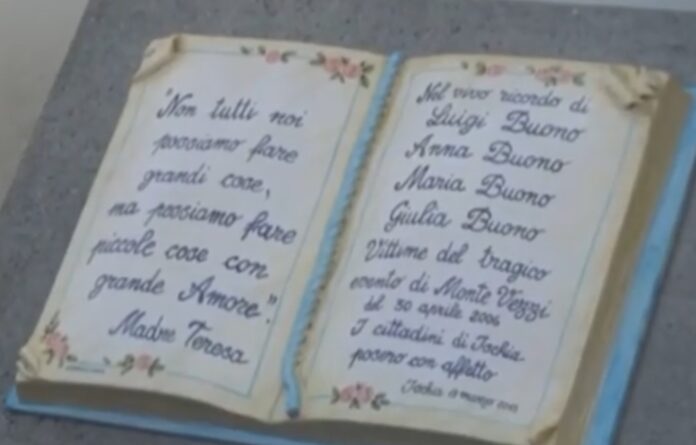 "Non tutti noi
possiamo fare
grandi cose,
ma possiamo fare
piccole cose con
grande Amore".
Madre Teresa
Nel vivo ricordo di
Luigi Buono
Anna Buono
Maria Buono
Giulia Buono
Vittime del tragico
evento di Monte Vezzi
del 30 aprile 2006
I cittadini di Ischia
posero con affetto
Ischia